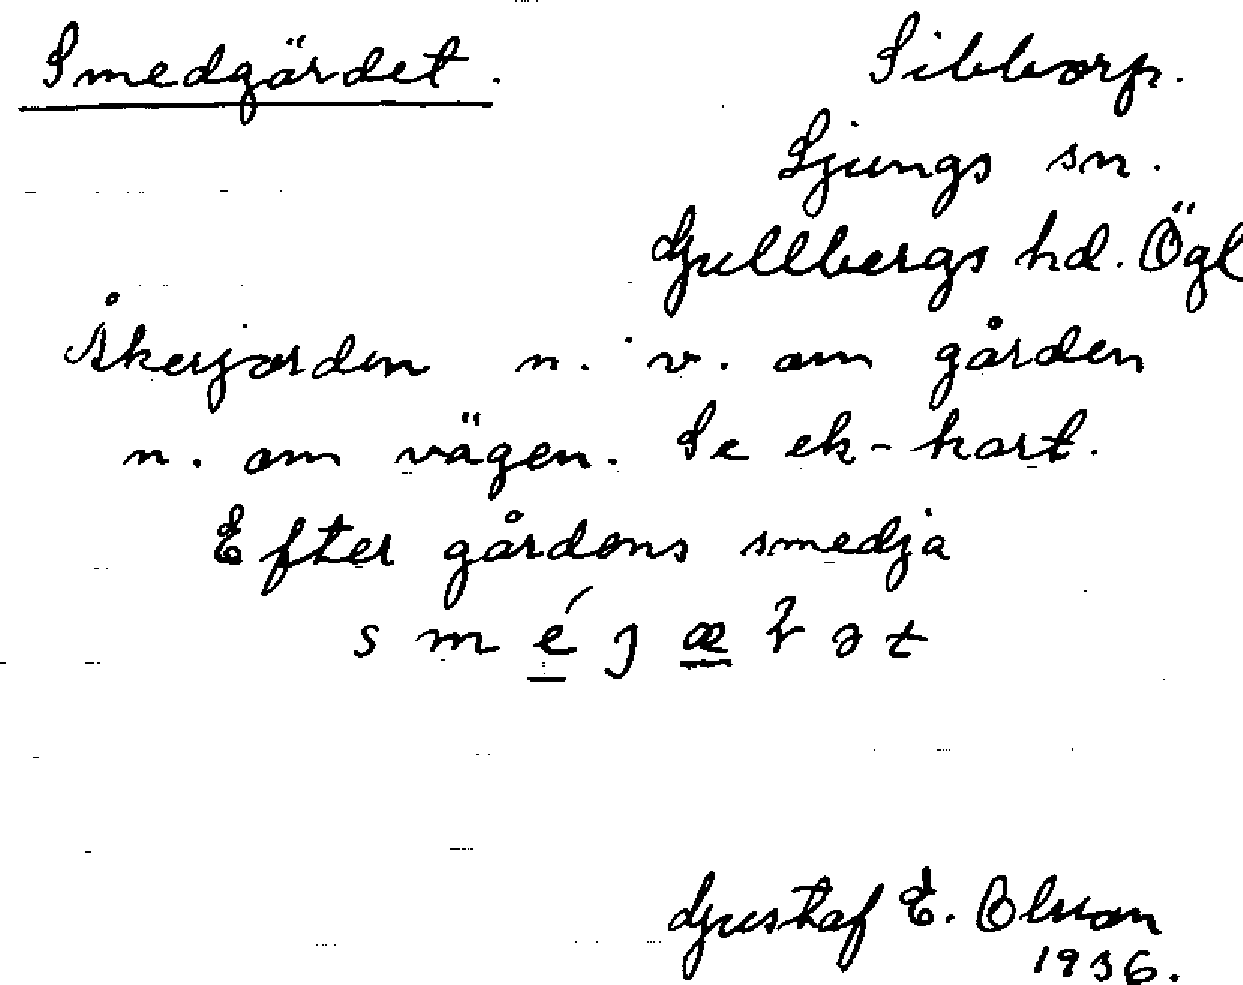 Smedgärdet.
Sibborp.
Ljungs sn.
Gullbergs hd. Ögl
Åkerjorden n. v. om gården
n. om vägen. Se ek-kart.
Efter gårdens smedja
Gustaf E. Olsson
1936.